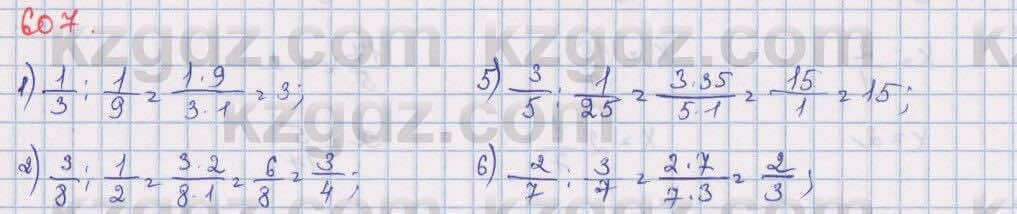 607.
kzgdz.com
1) 1/3 : 1/9 = 1·9/3·1 = 3;
5) 3/5 : 1/25 = 3·35/5·1 = 15/1 = 15;
kzgdz.com
2) 3/8 : 1/2 = 3·2/8·1 = 6/8 = 3/4;
6) 2/7 : 3/7 = 2·7/7·3 = 2/3;